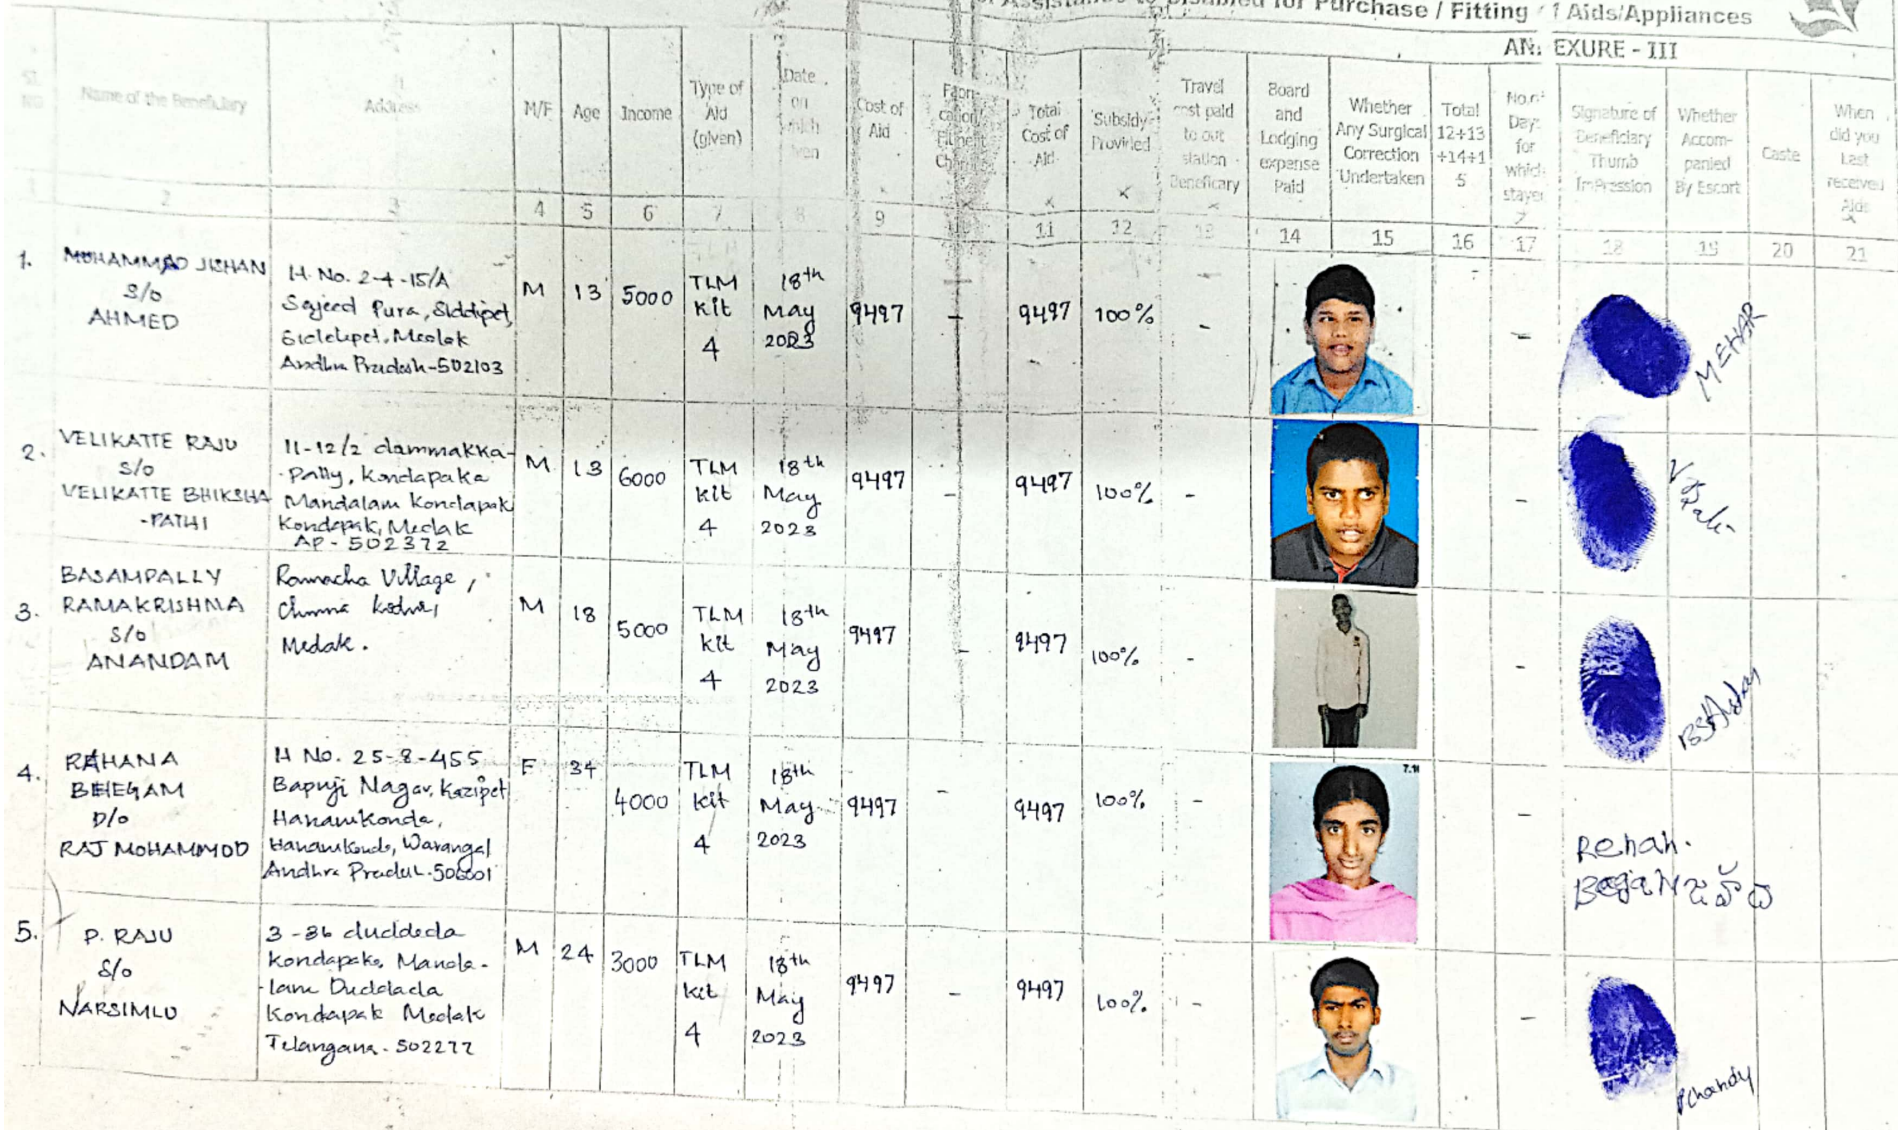 Assistance to Disabled for Purchase / Fitting of Aids/Appliances
ANNEXURE - III
Sl. No
Name of the Beneficiary
Address
M/F
Age
Income
Type of Aid (given)
Date on which given
Cost of Aid
Total Cost of Aid
Subsidy Provided
Travel cost paid to out station Beneficary
Board and Lodging expense Paid
Whether Any Surgical Correction Undertaken
Total 12+13 +14+1 5
No.of Days for which stayed
Signature of Beneficiary Thumb ImPression
Whether Accom- panied By Escort
Caste
When did you Last received Aids
1 2 3 4 5 6 7 8 9 10 11 12 13 14 15 16 17 18 19 20 21
1.
MOHAMMAD JISHAN
S/o
AHMED
H. No. 2-4-15/A
Sajeed Pura, Siddipet,
Siddipet, Medak
Andhra Pradesh-502103
M 13 5000
TLM Kit 4
18th May 2023
9497 - 9497 100% - -
MEHAR
2.
VELIKATTE RAJU
S/o
VELIKATTE BHIKSHA
-PATHI
11-12/2 dammakka-
-Pally, Kondapaka
Mandalam Kondapak
Kondapak, Medak
AP - 502372
M 13 6000
TLM Kit 4
18th May 2023
9497 - 9497 100% - -
3.
BASAMPALLY
RAMAKRISHNA
S/o
ANANDAM
Ramacha Village,
Chinna
Medak.
M 18 5000
TLM Kit 4
18th May 2023
9497 - 9497 100% - -
4.
RAHANA
BEHEGAM
D/o
RAJ MOHAMMOD
H No. 25-8-455
Bapuji Nagar, Kazipet
Hanamkonda,
Hanamkonda, Warangal
Andhra 506001
F 34 4000
TLM Kit 4
18th May 2023
9497 - 9497 100% - -
7.1
Rehah.
5.
P. RAJU
S/o
NARSIMLU
3-36 duddeda
Kondapaka, Manda-
-lam Duddada
Kondapak Medak
Telangana - 502277
M 24 3000
TLM Kit 4
18th May 2023
9497 - 9497 100% - -
Pchandy